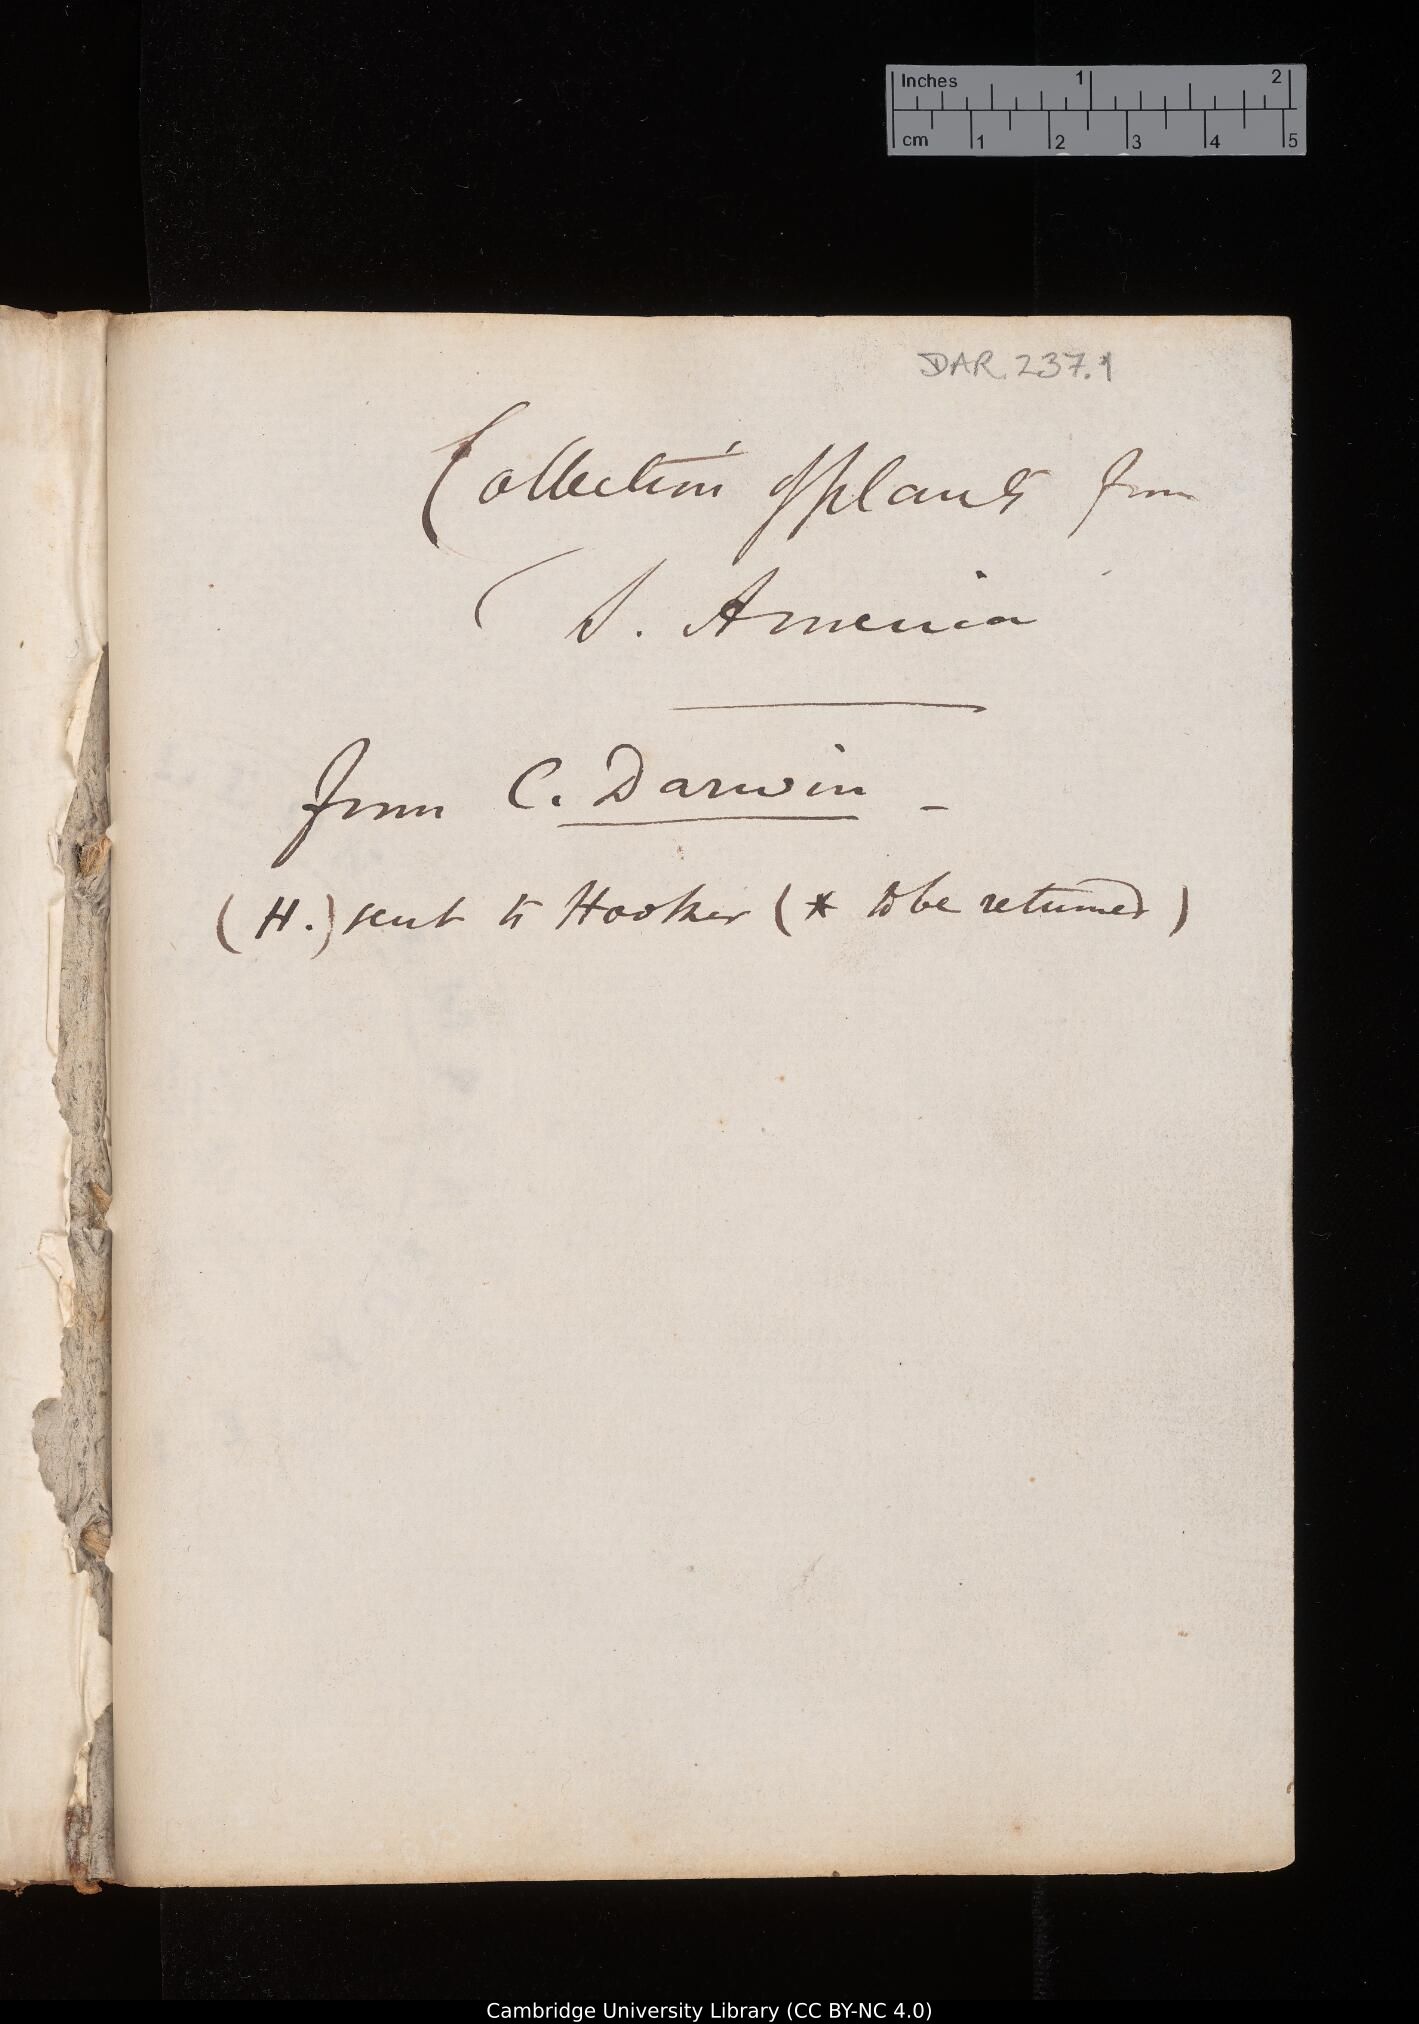 Inches 1 2
cm 1 2 3 4 5
DAR. 237.1
Collection of plants from
S. America
from C. Darwin –
(H.) sent to Hooker (* to be returned)
Cambridge University Library (CC BY-NC 4.0)